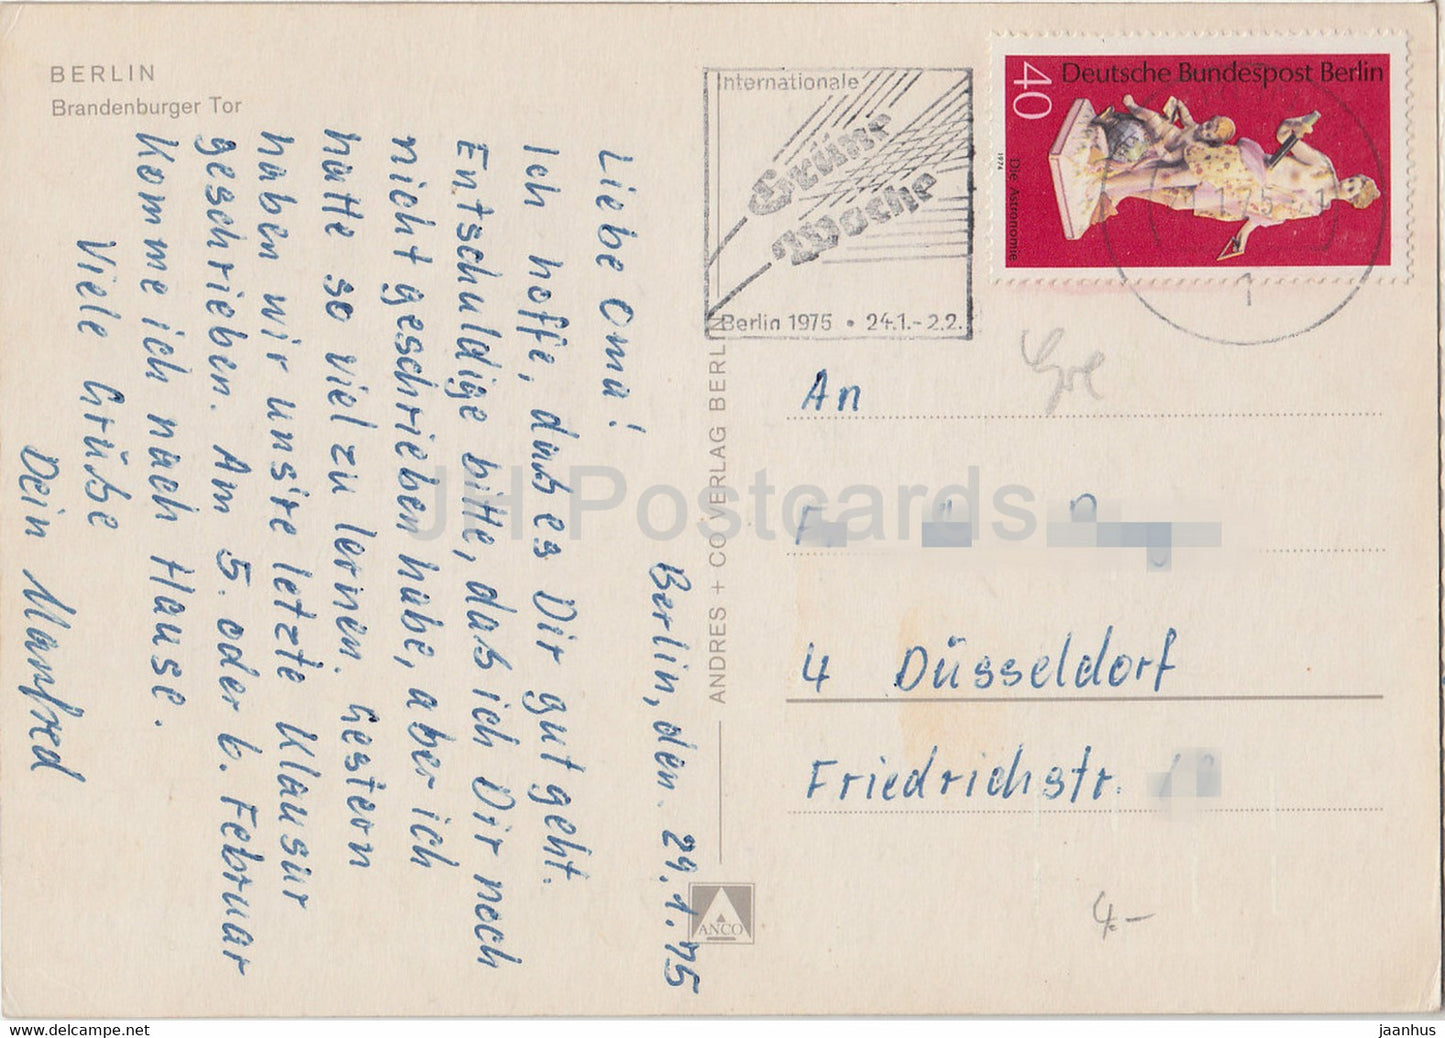 BERLIN
Brandenburger Tor
Internationale
Grüne
Woche
Berlin 1975 • 24.1.-2.2.
Deutsche Bundespost Berlin
40
1974
Die Astronomie
1
Berlin, den. 29.1.75
Liebe Oma!
Ich hoffe, daß es Dir gut geht.
Entschuldige bitte, daß ich Dir noch
nicht geschrieben habe, aber ich
hatte so viel zu lernen. Gestern
haben wir uns're letzte Klausur
geschrieben. Am 5. oder 6. Februar
komme ich nach Hause.
Viele Grüße
Dein Manfred
ANDRES + CO VERLAG BERLIN
ANCO
An
4 Düsseldorf
Friedrichstr.
4.-
JH Postcards
https://www.hippostcard.com
jaanhus